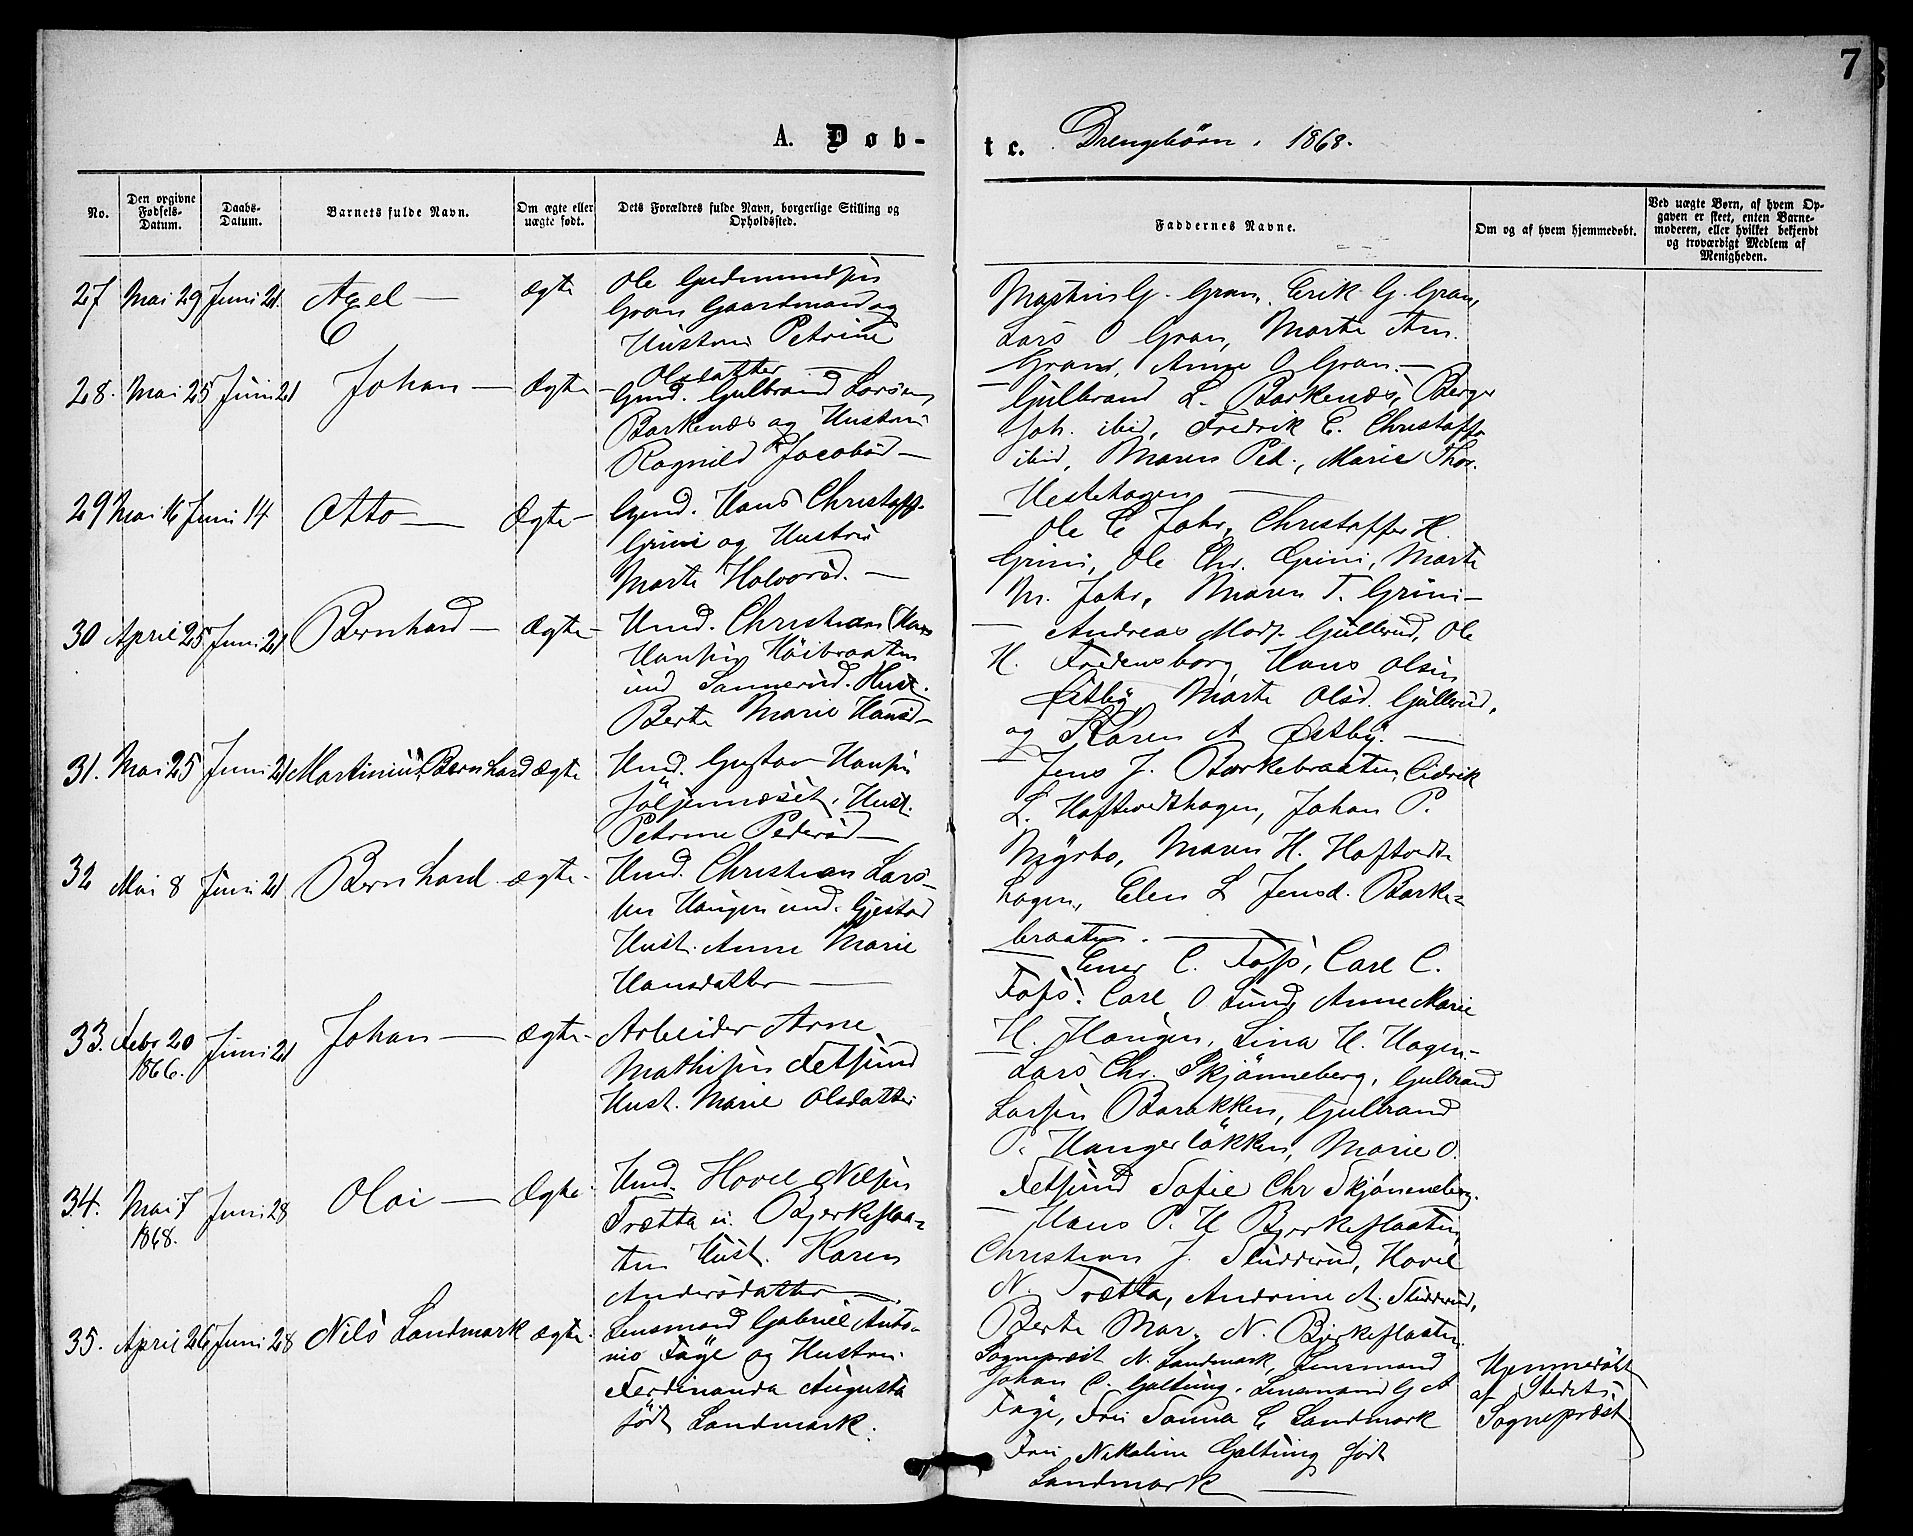 7
A. Døb-
te. Drengebörn. 1868.
No.
Den opgivne Fødsels-Datum.
Daabs-Datum.
Barnets fulde Navn.
Om ægte eller uægte født.
Dets Forældres fulde Navn, borgerlige Stilling og Opholdssted.
Faddernes Navne.
Om og af hvem hjemmedøbt.
Ved uægte Børn, af hvem Opgaven er skeet, enten Barnemoderen, eller hvilket bekjendt og troværdigt Medlem af Menigheden.
27 Mai 29 Juni 21. Axel — ægte
Ole Gudmundsen
Gran Gaardmand og
Hustru Petrine
Olsdatter —
Martin G. Gran, Erik G. Gran,
Lars O Gran, Marte Am.
Gran, Anne O Gran. —
28. Mai 25 Juni 21 Johan — Ægte —
Gmd. Gulbrand Larsen
Barkenæs og Hustru
Ragnild Jacobsd —
Gulbrand L. Barkenæs, Berger
Joh. ibid, Fredrik E. Christoffr
ibid, Maren Ped., Marie Thor.
Hestehagen —
29 Mai 16 Juni 14 Otto — Ægte —
Gmd. Hans Christoff.
Grini og Hustru
Marte Halvorsd. —
Ole C Jahr, Christoffer H.
Grini, Ole Chr. Grini, Marte
M. Jahr, Maren T. Grini —
30 April 25. Juni 21 Bernhard — Ægte —
Hmd. Christian Hans
Hansen Höibraaten
und Sannerud. Hust.
Berte Marie Hansd —
Andreas Mads. Gullerud, Ole
H. Fredensborg Hans Olsen
Østby, Marte Olsd. Gullerud,
og Karen A Østby. —
31. Mai 25 Juni 21 Martinius Bernhard ægte
Hmd. Gustav Hansen
Följennæset, Hust.
Petrine Pedersd —
Jens J. Barkebraaten, Eidrik
L. Haftvedthagen, Johan P.
Myrbo, Maren H. Haftvedt-
hagen, Elen L Jensd. Barke-
braaten. —
32 Mai 8 Juni 21 Bernhard. ægte.
Hmd. Christian Lars-
sen Haugen und. Gjestad
Hust. Anne Marie
Hansdatter —
Einer C. Foss, Carl C.
Foss. Carl O Lund, Anne Marie
H. Haugen, Lina H. Hagen. —
33. Febr 20 1866. Juni 21 Johan — ægte.
Arbeider Arne
Mathisen Fetsund
Hust. Marie Olsdatter
Lars Chr. Skjönneberg, Gulbrand
Larsen Barakken, Gulbrand
P. Hangerlökken, Marie O.
Fetsund Sofie Chr Skjönneberg.
34. Mai 7 1868. Juni 28 Olai — Ægte.
Hmd. Hovel Nilsen
Trætta u. Bjerkeflaa-
ten Hust. Karen
Andersdatter —
Hans P. H Bjerkeflaaten,
Christian J. Studderud, Hovel
N. Trætta, Andrine A. Studderud,
Berte Mar. N. Bjerkeflaaten.
35. April 26 Juni 28 Nils Landmark ægte.
Lensmand Gabriel Anto-
nio Faye og Hustru
Ferdinanda Augusta
født Landmark.
Sognepræst N. Landmark, Lensmand
Johan C. Galtung, Lensmand G A
Faye, Fru Sanna C Landmark
Fru Nikoline Galtung født
Landmark —
Hjemmedøbt
af Stedets
Sognepræst